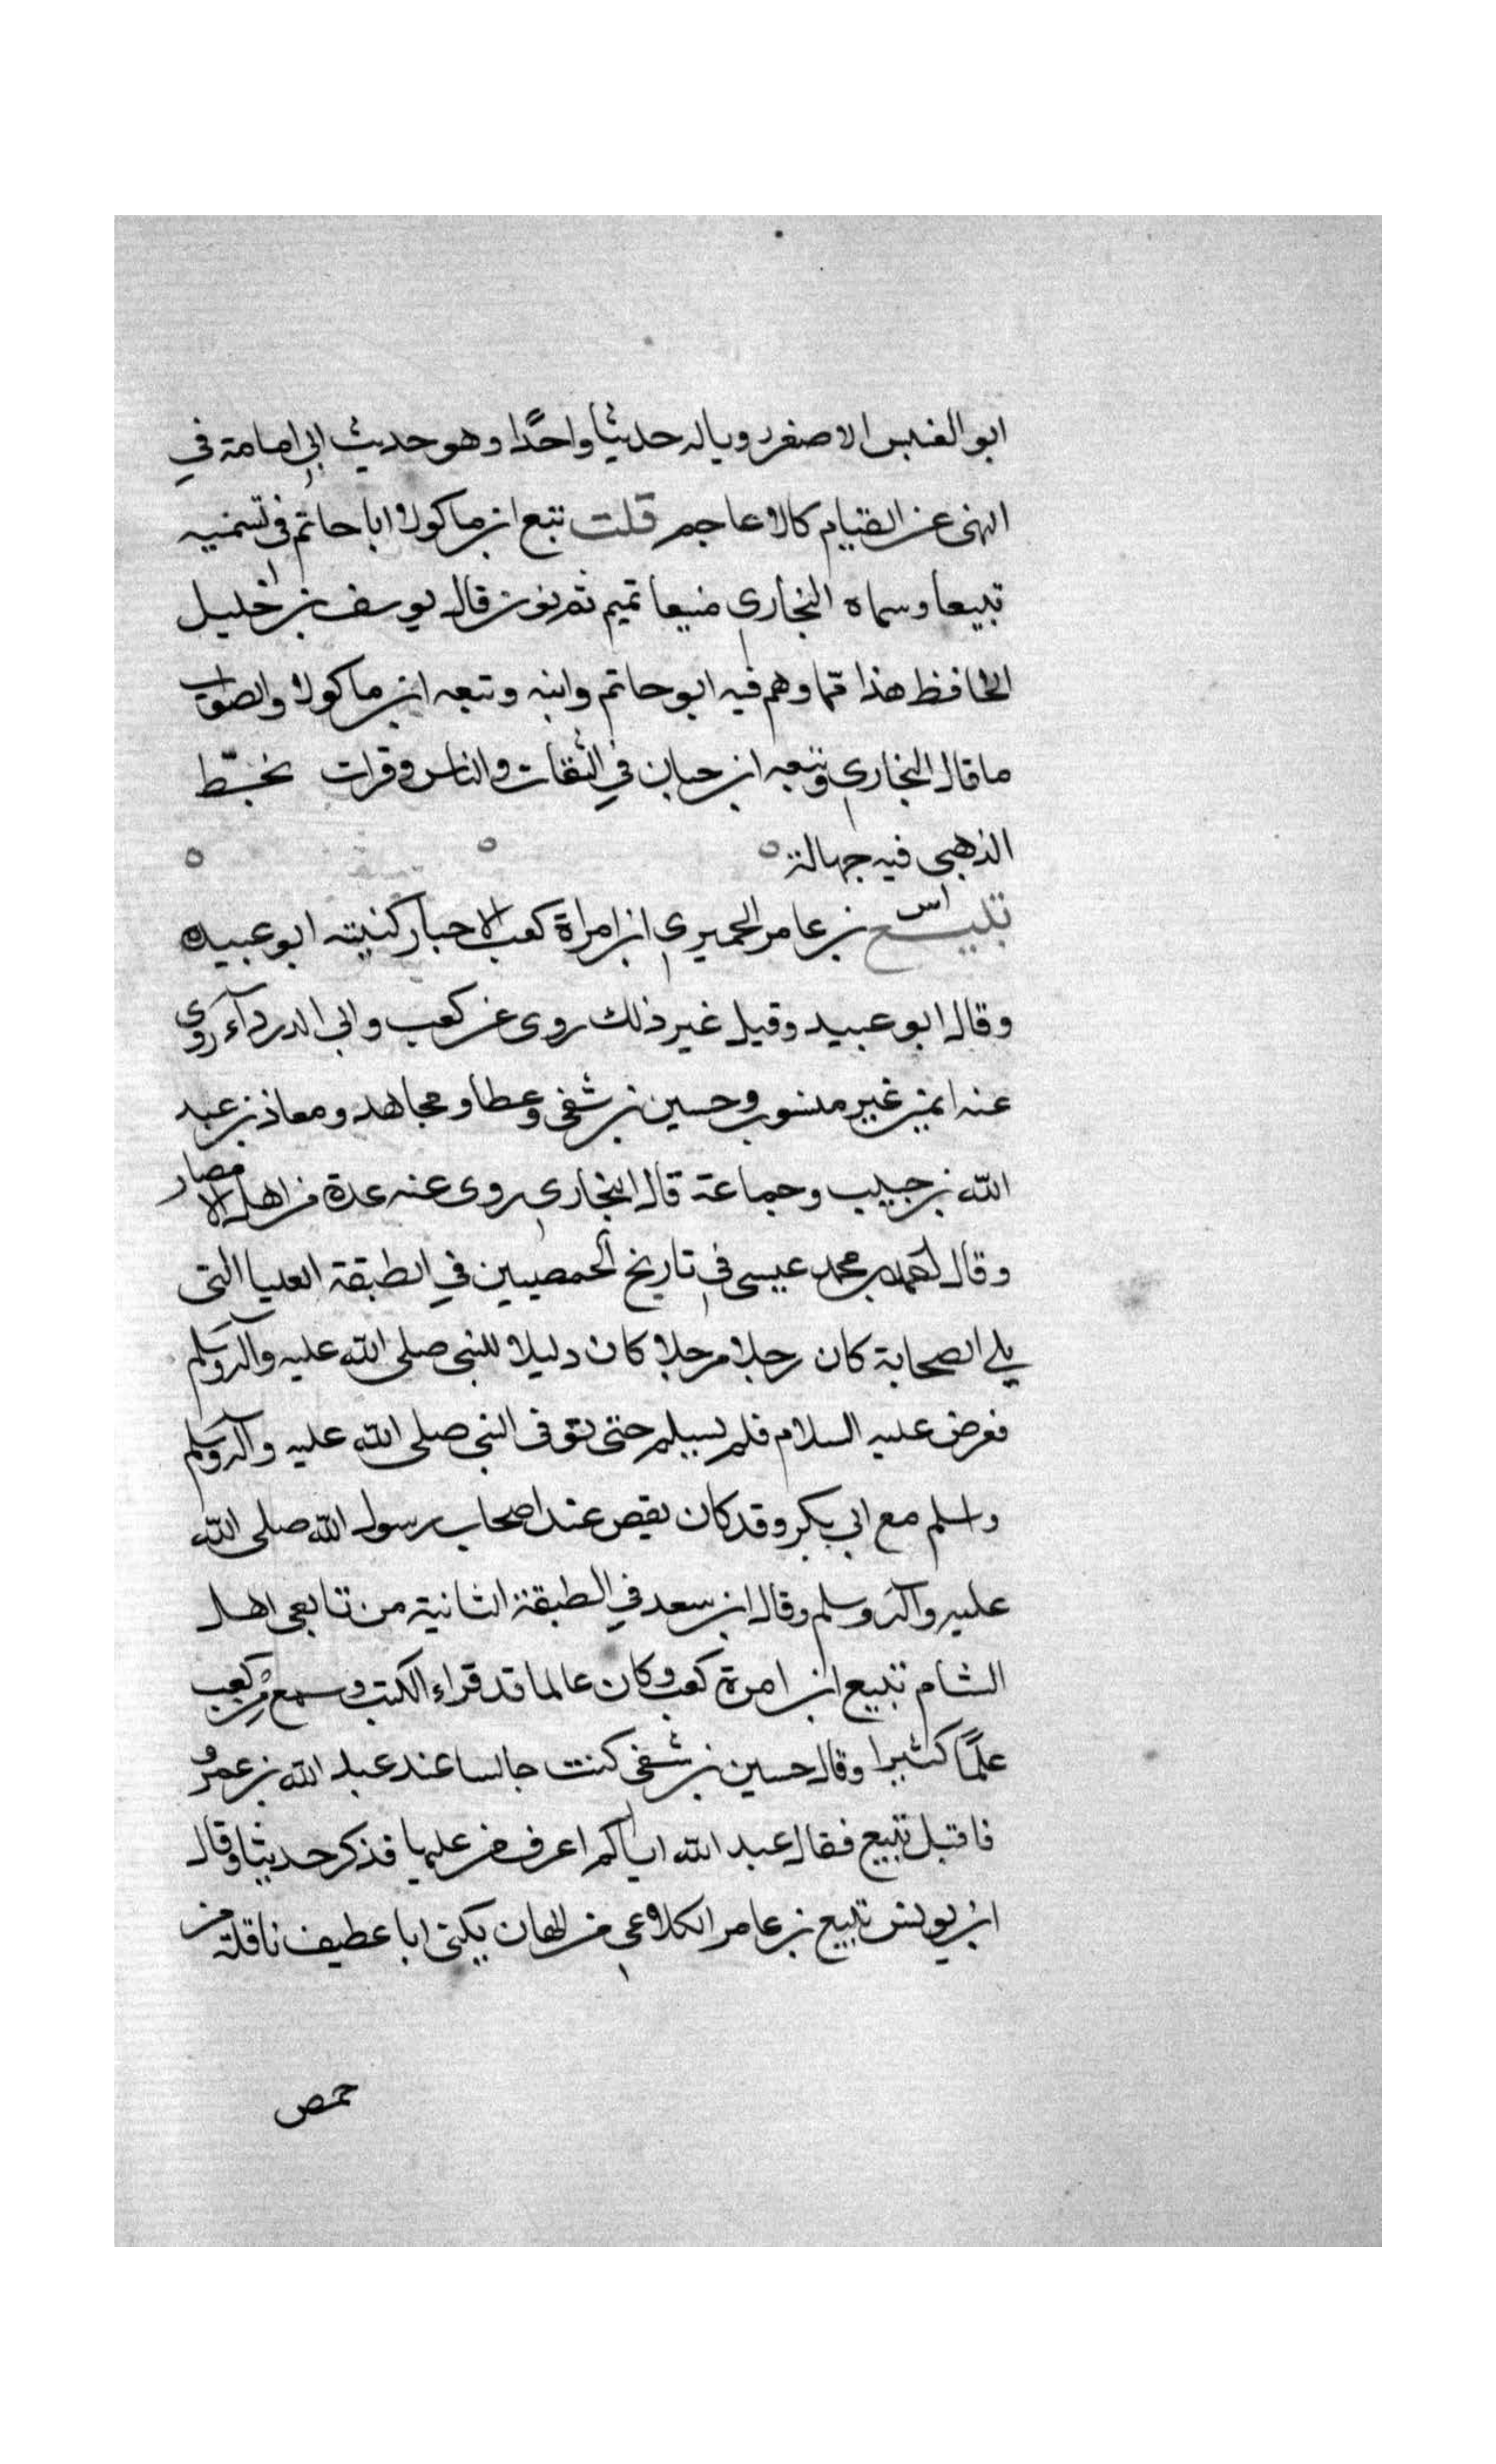 ابو العنبس الاصغر رويا له حديثا واحدًا وهو حديث ابي امامة في
النهى عن القيام كالاعاجم قلت تبع ابن ماكولا ابا حاتم في تسمنيه
تبيعا وسماه البخاري منيعا تميم ثم نون قال يوسف بن خليل
الحافظ هذا مما وهم فيه ابو حاتم وابنه وتبعه ابن ماكولا والصواب
ما قال البخاري وتبعه ابن حبان في الثقات والناس وقرات بخط
الذهبي فيه جهالة
تبيع بن عامر الحميري ابن امراة كعب الاحبار كنيته ابو عبيده
وقال ابو عبيد وقيل غير ذلك روى عن كعب وابي الدردآء روى
عنه ايمن غير منسوب وحسين بن شفى وعطا ومجاهد ومعاذ بن عبد
الله بن حبيب وجماعة قال البخاري روى عنه عدة من اهل الامصار
وقال احمد بن محمد عيسى في تاريخ الحمصيين في الطبقة العليا التى
يلي الصحابة كان رجلا مرجلا كان دليلا للنبي صلى الله عليه وآله وسلم
فعرض عليه السلام فلم يسلم حتى توفى النبي صلى الله عليه وآله وسلم
واسلم مع ابي بكر وقد كان يقص عند اصحاب رسول الله صلى الله
عليه وآله وسلم وقال ابن سعد في الطبقة الثانية من تابعى اهل
الشام تبيع ابن امرة كعب وكان عالما قد قراء الكتب وسمع من كعب
علمًا كثيرا وقال حسين بن شفى كنت جالسا عند عبد الله بن عمرو
فاقبل تبيع فقال عبد الله اياكم اعرف من عليها فذكر حديثا وقال
ابن يونس تبيع بن عامر الكلاعى من الهان يكنى ابا عطيف ناقلة من
حمص